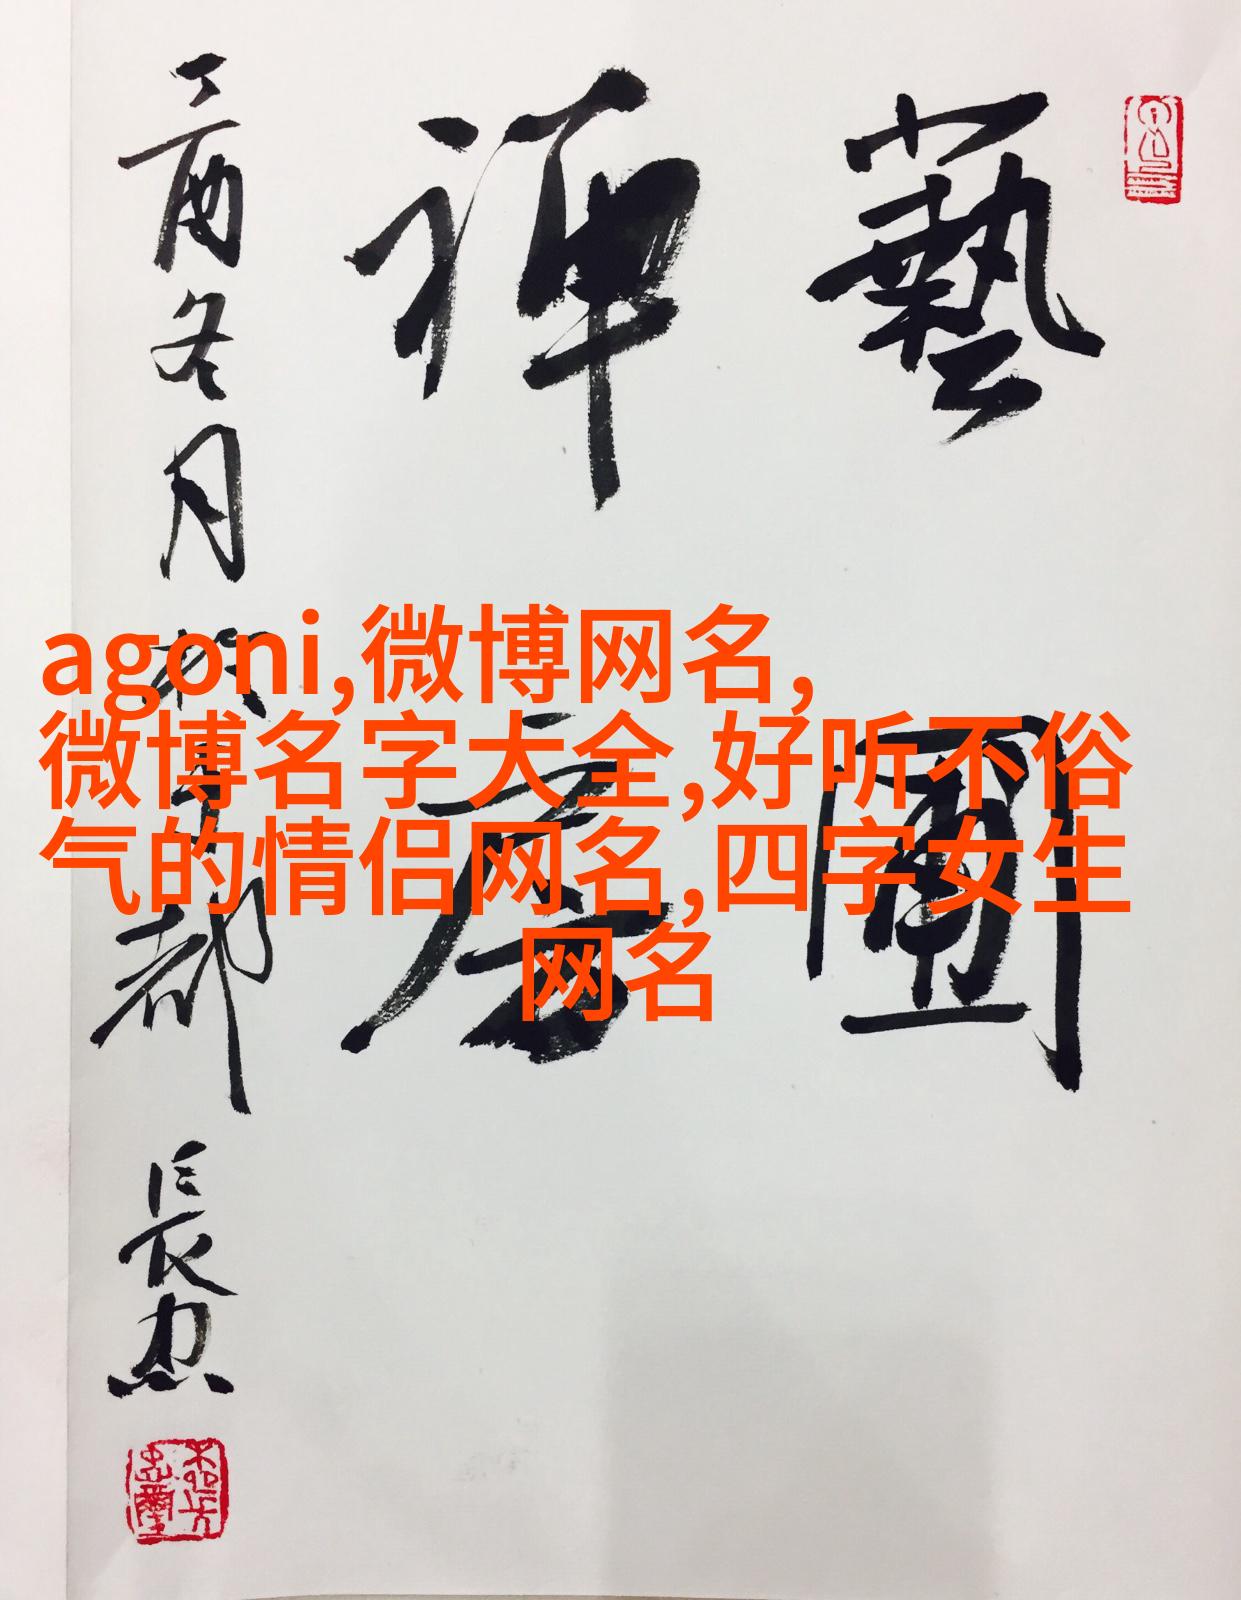 藝圃
禅房
酉冬月於京都
長忠
agoni,微博网名,
微博名字大全,好听不俗
气的情侣网名,四字女生
网名